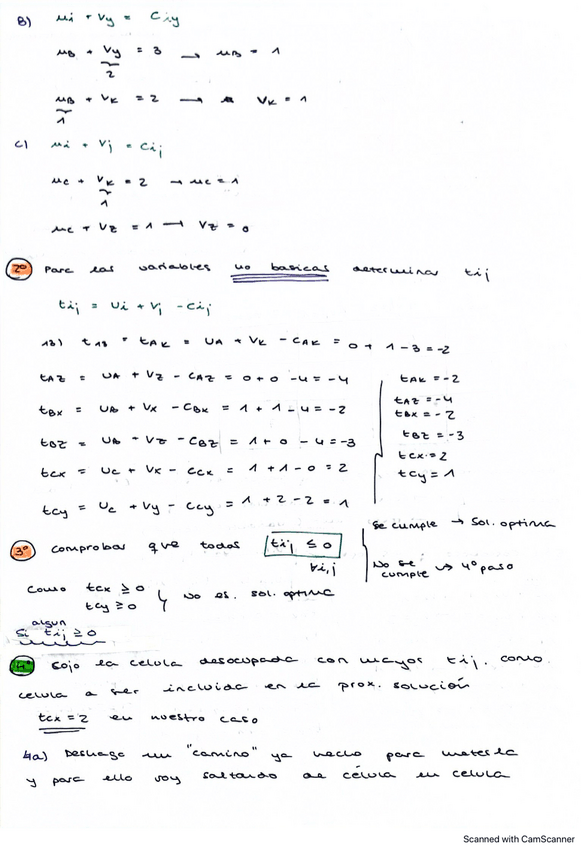 B) ui + Vy = Ciy
uB + Vy = 3 → uB = 1
2
uB + VK = 2 → VK = 1
1
C) ui + Vj = Cij
uc + VK = 2 → uc = 1
1
uc + VZ = 1 → VZ = 0
2º Para las variables no basicas determinar tij
tij = Ui + Vj - Cij
13) t13 = tAK = UA + VK - CAK = 0 + 1 - 3 = -2
tAZ = UA + VZ - CAZ = 0 + 0 - 4 = -4
tBX = UB + VX - CBX = 1 + 1 - 4 = -2
tBZ = UB + VZ - CBZ = 1 + 0 - 4 = -3
tCX = UC + VX - CCX = 1 + 1 - 0 = 2
tCY = UC + VY - CCY = 1 + 2 - 2 = 1
tAK = -2
tAZ = -4
tBX = -2
tBZ = -3
tCX = 2
tCY = 1
3º comprobar que todos tij ≤ 0
∀i,j
Se cumple → Sol. optima
No se cumple → 4º paso
Como tCX ≥ 0
tCY ≥ 0
No es. sol. optima
algun
Si tij ≥ 0
4º Cojo la celula desocupada con mayor tij. como
celula a ser incluida en la prox. solución
tCX = 2 en nuestro caso
4a) Deshago un "camino" ya hecho para meterla
y para ello voy saltando de célula en celula
Scanned with CamScanner